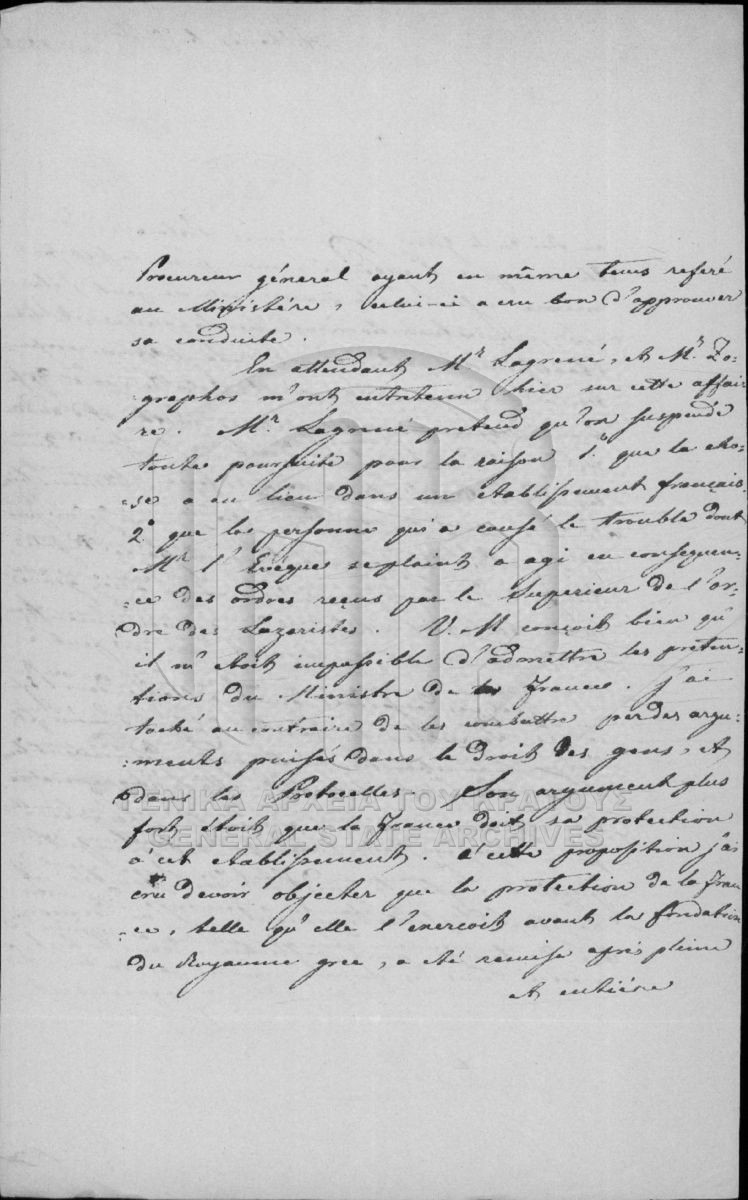 Procureur géneral ayant en même tems referé
au Ministére, celui-ci a cru bon d'approuver
sa conduite.
En attendant Mr Lagrené, et Mr Zo-
graphos m'ont entretenu hier sur cette affai-
re. Mr Lagrené pretend qu'on suspende
toute poursuite pour la raison 1.° que la cho-
-se a eu lieu dans un etablissement français
2.° que la personne qui a causé le trouble dont
Mr l'Evêque se plaint a agi en consequen-
-ce des ordres reçus par le Superieur de l'or-
dre des Lazaristes. V. M conçoit bien qu'
il m'etoit impossible d'admettre les preten-
-tions du Ministre de France. J'ai
taché au contraire de les combattre par des argu-
-ments puisés dans le droit des gens, et
dans les Protocolles. Son argument plus
fort étoit que la France doit sa protection
à cet etablissement. à cette proposition j'ai
cru devoir objecter que la protection de la Fran
-ce, telle qu'elle l'enercoit avant la fondation
du Royaume grec, a eté remise après pleine
et entiére
ΓΕΝΙΚΑ ΑΡΧΕΙΑ ΤΟΥ ΚΡΑΤΟΥΣ
GENERAL STATE ARCHIVES